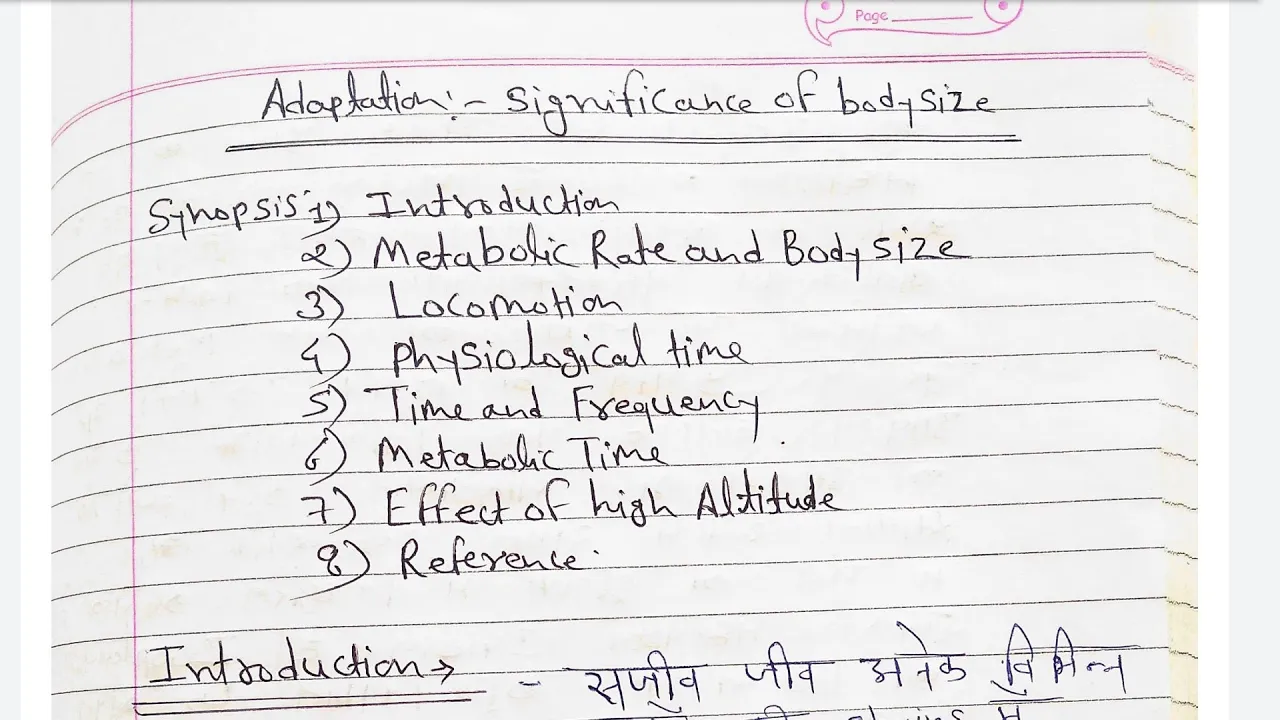 Page
Adaptation:- Significance of body size
Synopsis:1) Introduction
2) Metabolic Rate and Body size
3) Locomotion
4) Physiological time
5) Time and Frequency
6) Metabolic Time
7) Effect of high Altitude
8) Reference.
Introduction → - सजीव जीव अनेक विभिन्न